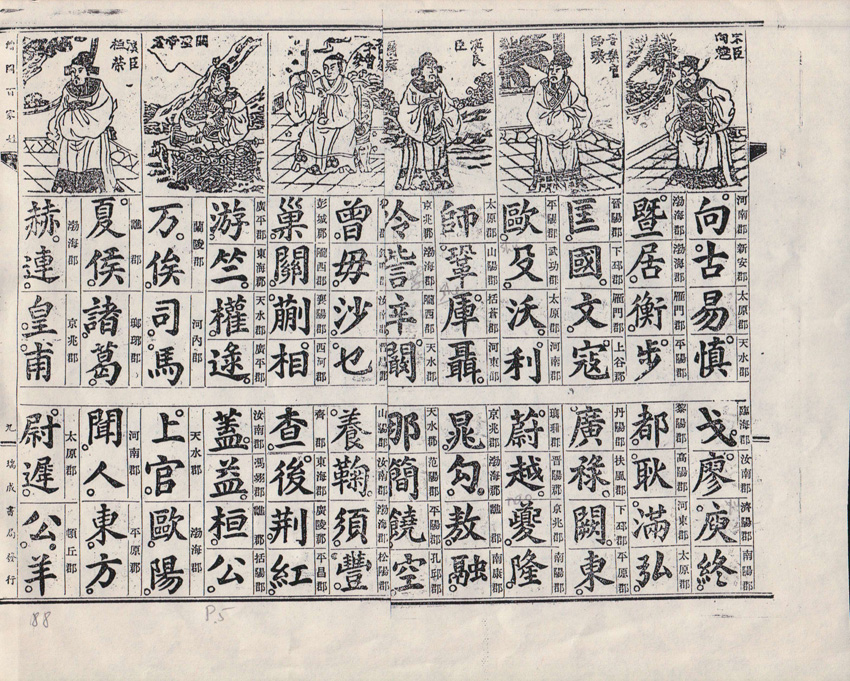 宋臣
晉樂官師曠
漢良臣
關聖帝君
漢臣桓榮
河南郡 新安郡 太原郡 天水郡
向古易慎
渤海郡 渤海郡 雁門郡 平陽郡
暨居衡步
晉陽郡 下邳郡 雁門郡 上谷郡
匡國文寇
平陽郡 武功郡 太原郡 河南郡
歐殳沃利
太原郡 山陽郡 括蒼郡 河東郡
師鞏厙聶
京兆郡 渤海郡 隴西郡 天水郡
冷訾辛闞
曾毋沙乜
彭城郡 隴西郡 襄陽郡 西河郡
巢關蒯相
廣平郡 東海郡 天水郡 廣平郡
游竺權逯
蘭陵郡 河內郡
万俟司馬
譙郡 瑯琊郡
夏侯諸葛
渤海郡 京兆郡
赫連皇甫
臨海郡 汝南郡 濟陽郡 南陽郡
戈廖庾終
黎陽郡 高陽郡 河東郡 太原郡
都耿滿弘
丹陽郡 扶風郡 下邳郡 平原郡
廣祿闕東
瑯琊郡 晉陽郡 京兆郡 南陽郡
蔚越夔隆
京兆郡 渤海郡 譙郡 南康郡
晁勾敖融
天水郡 范陽郡 平陽郡 孔邱郡
那簡饒空
山陽郡 汝南郡 渤海郡 松陽郡
養鞠須豐
齊郡 東海郡 廣陵郡 平昌郡
查後荊紅
汝南郡 馮翊郡 譙郡 括陽郡
蓋益桓公
天水郡 渤海郡
上官歐陽
河南郡 平原郡
聞人東方
太原郡 頓丘郡
尉遲公羊
九 瑞成書局發行
88
P.5